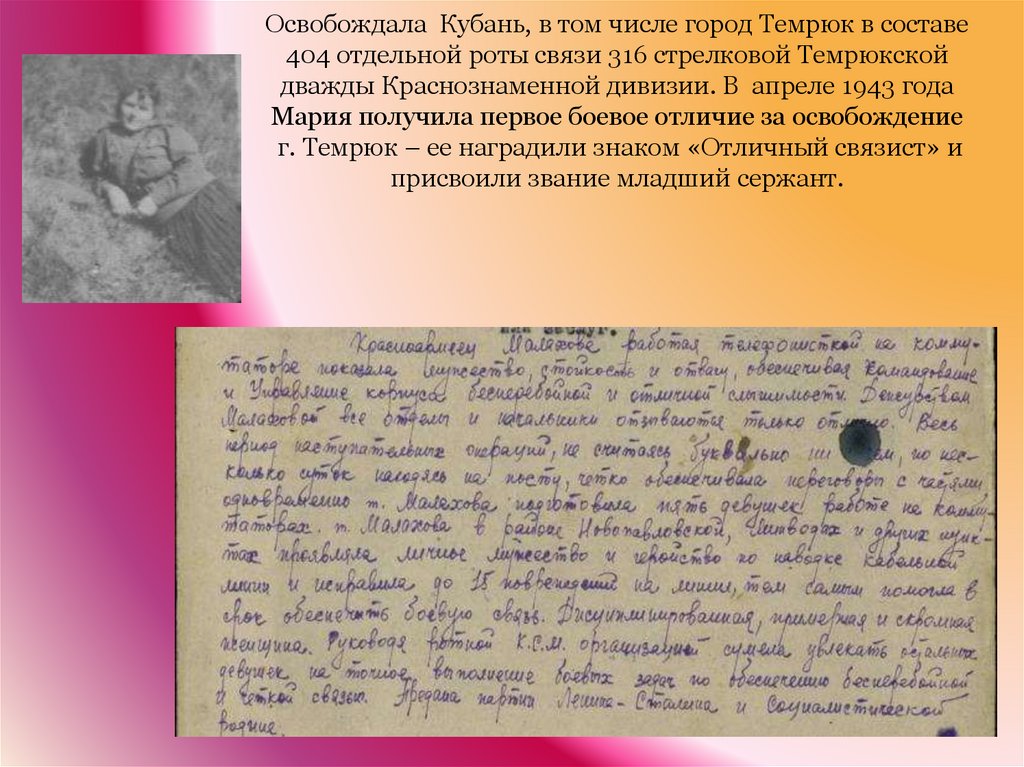 Освобождала Кубань, в том числе город Темрюк в составе
404 отдельной роты связи 316 стрелковой Темрюкской
дважды Краснознаменной дивизии. В апреле 1943 года
Мария получила первое боевое отличие за освобождение
г. Темрюк – ее наградили знаком «Отличный связист» и
присвоили звание младший сержант.
Красноармеец Малахова работая телефонисткой на комму-
таторе показала мужество, стойкость и отвагу, обеспечивая Командование
и Управление корпуса бесперебойной и отличной слышимостью. Дежурством
Малаховой все отделы и начальники отзываются только отлично. Весь
период наступательных операций, не считаясь буквально ни , по нес-
колько суток находясь на посту, четко обеспечивала переговоры с частями,
одновременно т. Малахова подготовила пять девушек работе на комму-
таторах. т. Малахова в районах Новопавловской, и других пунк-
тах проявляла личное мужество и геройство по наводке кабельной
линии и исправила до 15 повреждений на линии, тем самым помогла в
срок обеспечить боевую связь. Дисциплинированная, примерная и скромная
женщина. Руководя ротной К.С.М. организацией сумела увлекать остальных
девушек на точное выполнение боевых задач по обеспечению бесперебойной
и четкой связью. Предана партии Ленина-Сталина и Социалистической
родине.